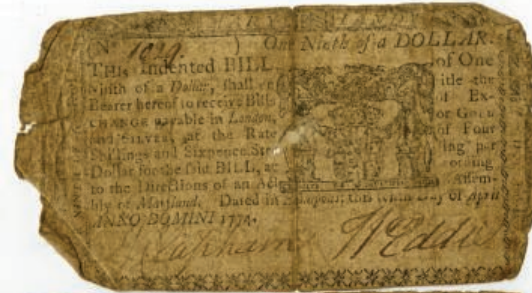 MARYLAND
No 1039 ) One Ninth of a DOLLAR.
THIS Indented BILL of One
Ninth of a Dollar, shall en itle the
Bearer hereof to receive Bills of Ex-
CHANGE payable in London, or GOLD
and SILVER, at the Rate of Four
Shillings and Sixpence Ster ling per
Dollar for the said BILL, ac cording
to the Directions of an Act Assem-
bly of Maryland. Dated in Annapolis this Day of April
ANNO DOMINI 1774.
J Clapham Wm Eddis